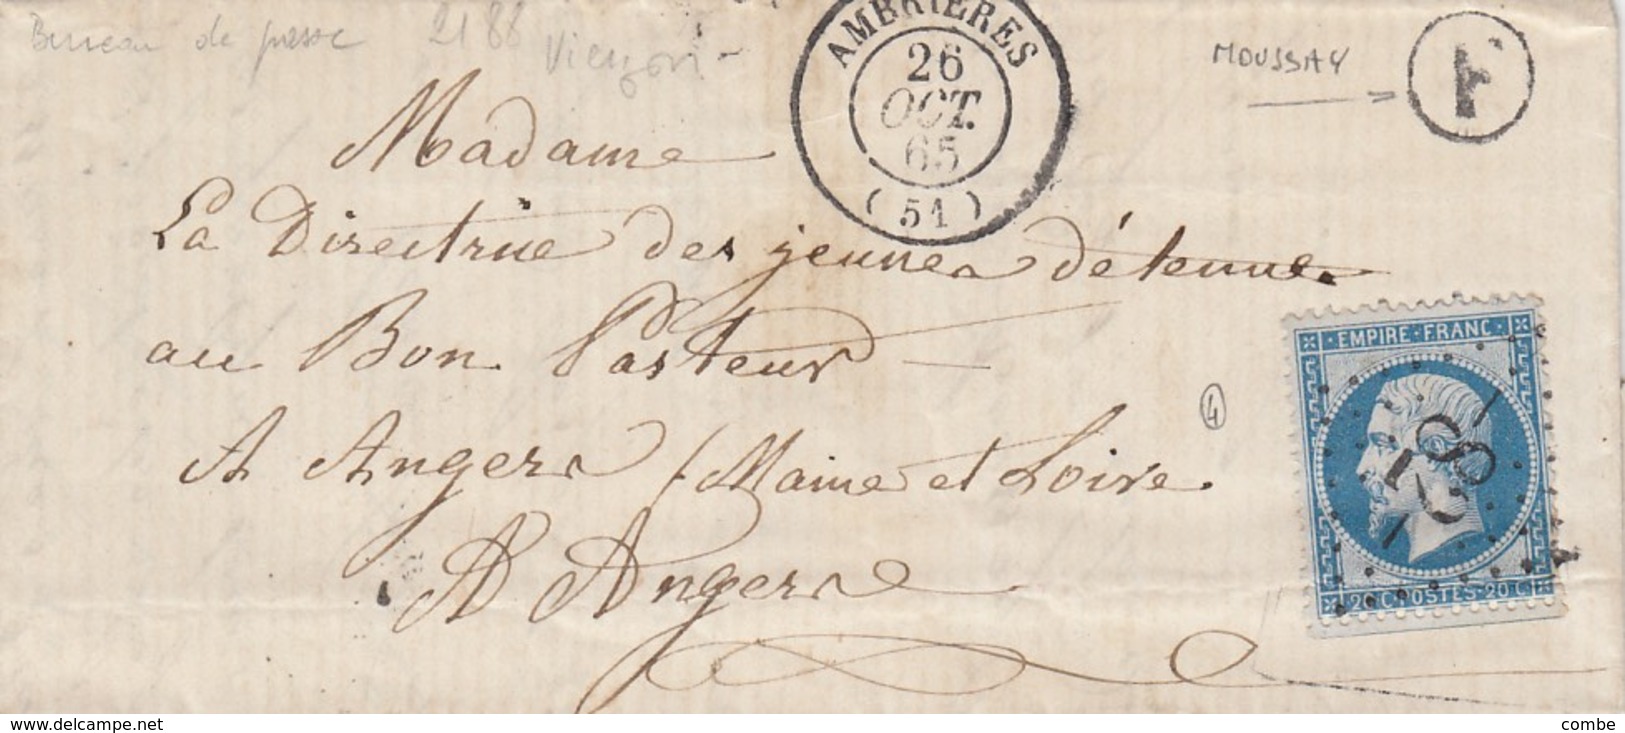 Bureau de passe 2188
Vierzon
AMBRIERES
26
OCT.
65
(51)
MOUSSAY
1
Madame
La Directrice des jeunes détenues
au Bon Pasteur
A Angers (Maine et Loire
A Angers
4
EMPIRE·FRANC
82
20 C·POSTES·20 C
www.delcampe.net
combe